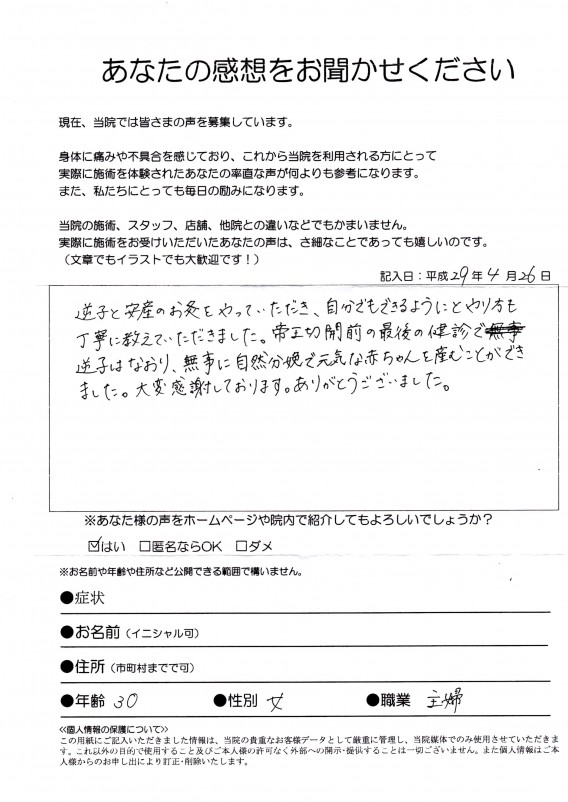 あなたの感想をお聞かせください
現在、当院では皆さまの声を募集しています。
身体に痛みや不具合を感じており、これから当院を利用される方にとって
実際に施術を体験されたあなたの率直な声が何よりも参考になります。
また、私たちにとっても毎日の励みになります。
当院の施術、スタッフ、店舗、他院との違いなどでもかまいません。
実際に施術をお受けいただいたあなたの声は、さ細なことであっても嬉しいのです。
（文章でもイラストでも大歓迎です！）
記入日：平成29年4月26日
逆子と安産のお灸をやっていただき、自分でもできるようにとやり方も
丁寧に教えていただきました。帝王切開前の最後の健診で無事
逆子はなおり、無事に自然分娩で元気な赤ちゃんを産むことができ
ました。大変感謝しております。ありがとうございました。
※あなた様の声をホームページや院内で紹介してもよろしいでしょうか？
☑はい □匿名ならOK □ダメ
※お名前や年齢や住所など公開できる範囲で構いません。
●症状
●お名前（イニシャル可）
●住所（市町村までで可）
●年齢 30 ●性別 女 ●職業 主婦
≪個人情報の保護について≫
この用紙にご記入いただきました情報は、当院の貴重なお客様データとして厳重に管理し、当院媒体でのみ使用させていただきま
す。これ以外の目的で使用すること及びご本人様の許可なく外部への開示・提供することは一切ございません。また個人情報はご本
人様からのお申し出により訂正・削除いたします。